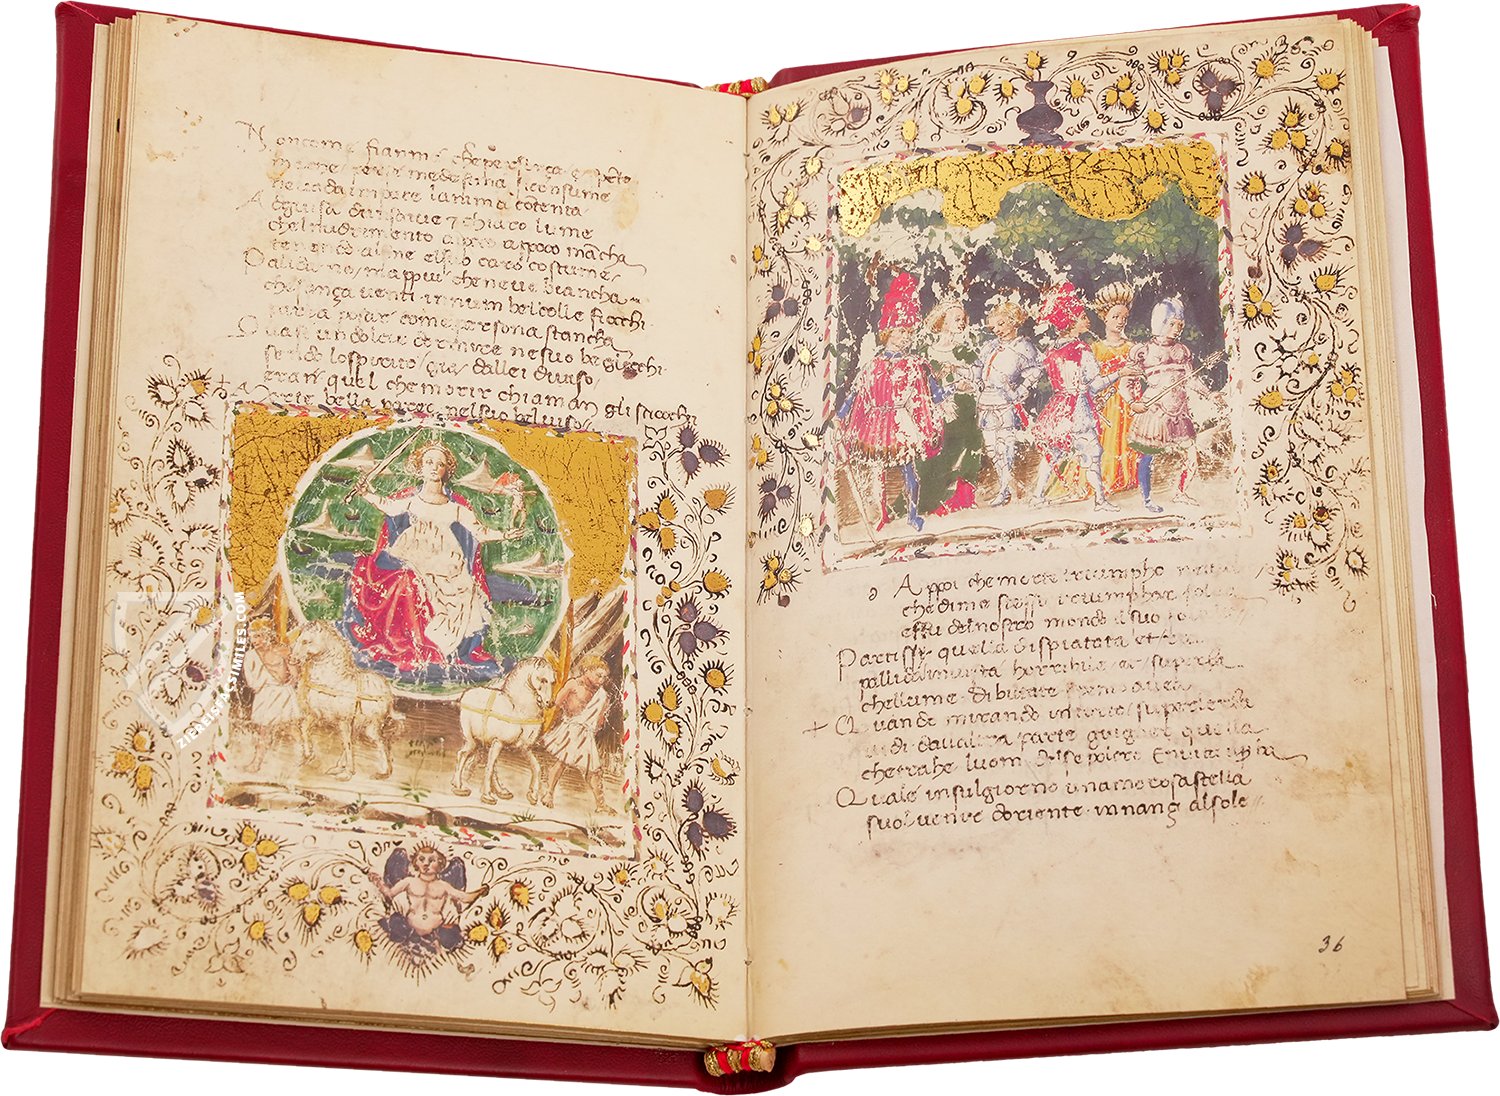 Non come fiamma che per forza e spẽta
ma che per se medesma si consume
se nada in pace lanima cõtenta
A guisa dun soave & chiaro lume
chel nudrimento a poco a poco mãcha
tenendo al fine el suo caro costume
Palida no / ma piu che neve biancha
che sança venti in un bel colle fiocchi
parea posar come persona stancha
Quasi un dolce dormire ne suo begliocchi
sendo lo spirito / gia dallei diviso /
eran quel che morir chiaman gli sciocchi
Morte bella parea nel suo bel viso /
ZIEREIS FACSIMILES.COM
36
Da poi che morte triumpho
che di me stesso triumphar solea
effu del nostro mondo il suo sol
Partissi quella dispiatata et rea
pallida in vista horribile / et superba
chel lume di biltate spento avea
Quando mirando intorno / su per lerba
vidi davaltra parte giugner quella
che trahe luom del sepolcro
Quale in sul giorno una morosa stella
suol venire doriente innanzi al sole
36